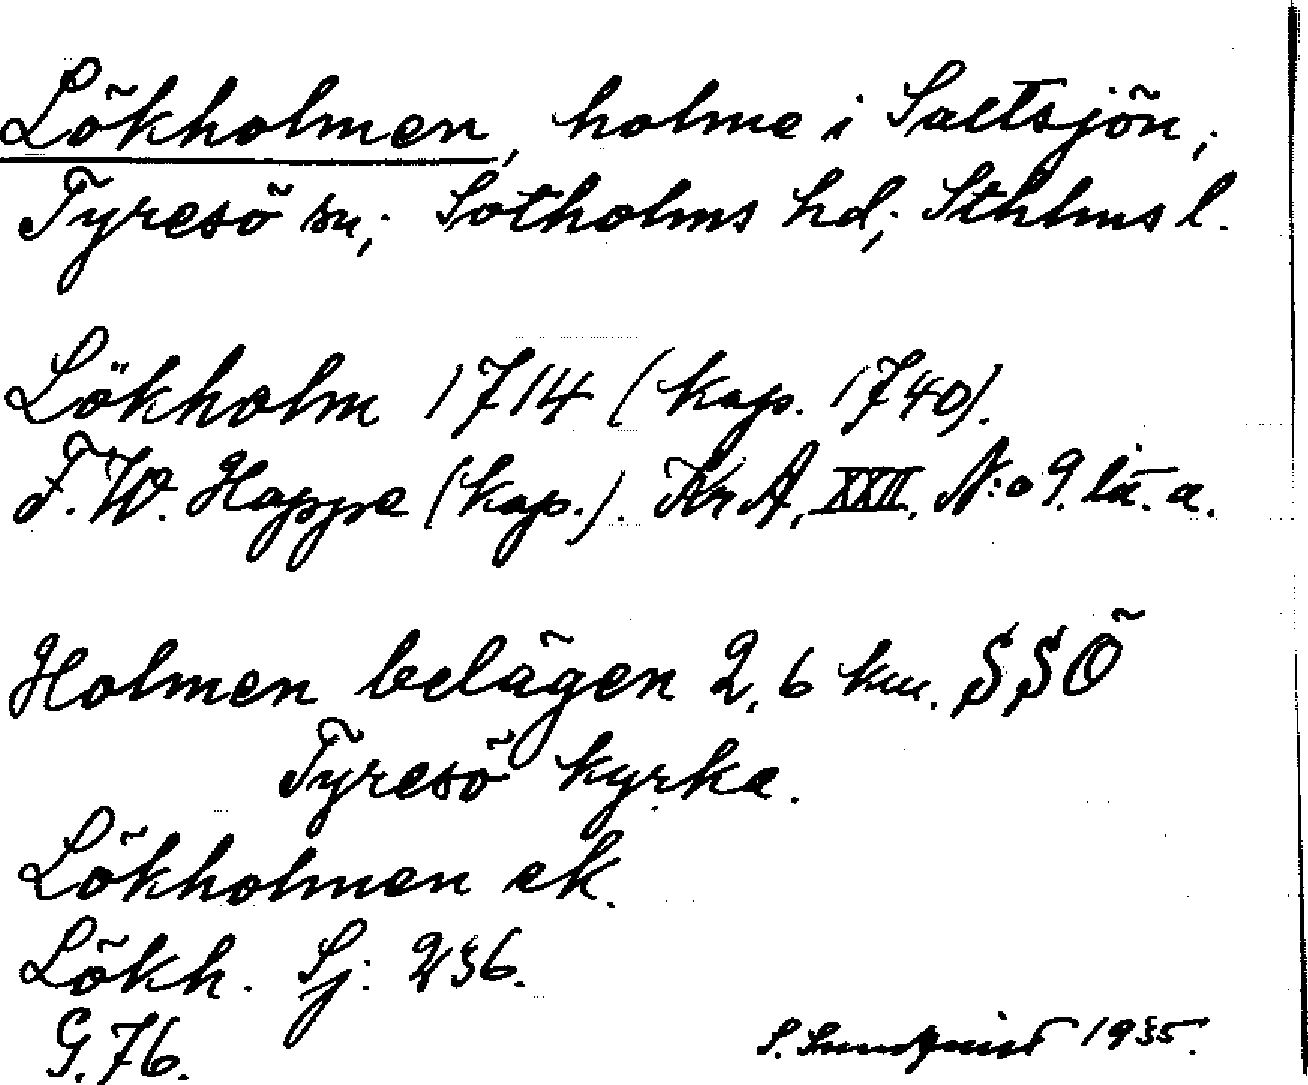 Lökholmen, holme i Saltsjön,
Tyresö sn, Sotholms hd, Sthlms l.
Lökholm 1714 (kop. 1740).
F. W. Hoppe (kop.). Kr A, XXII, N:o 9. lit. a.
Holmen belägen 2,6 km. SSÖ
Tyresö kyrka.
Lökholmen ek.
Lökh. Sj: 236.
G. 76.
S. Sundquist 1935.